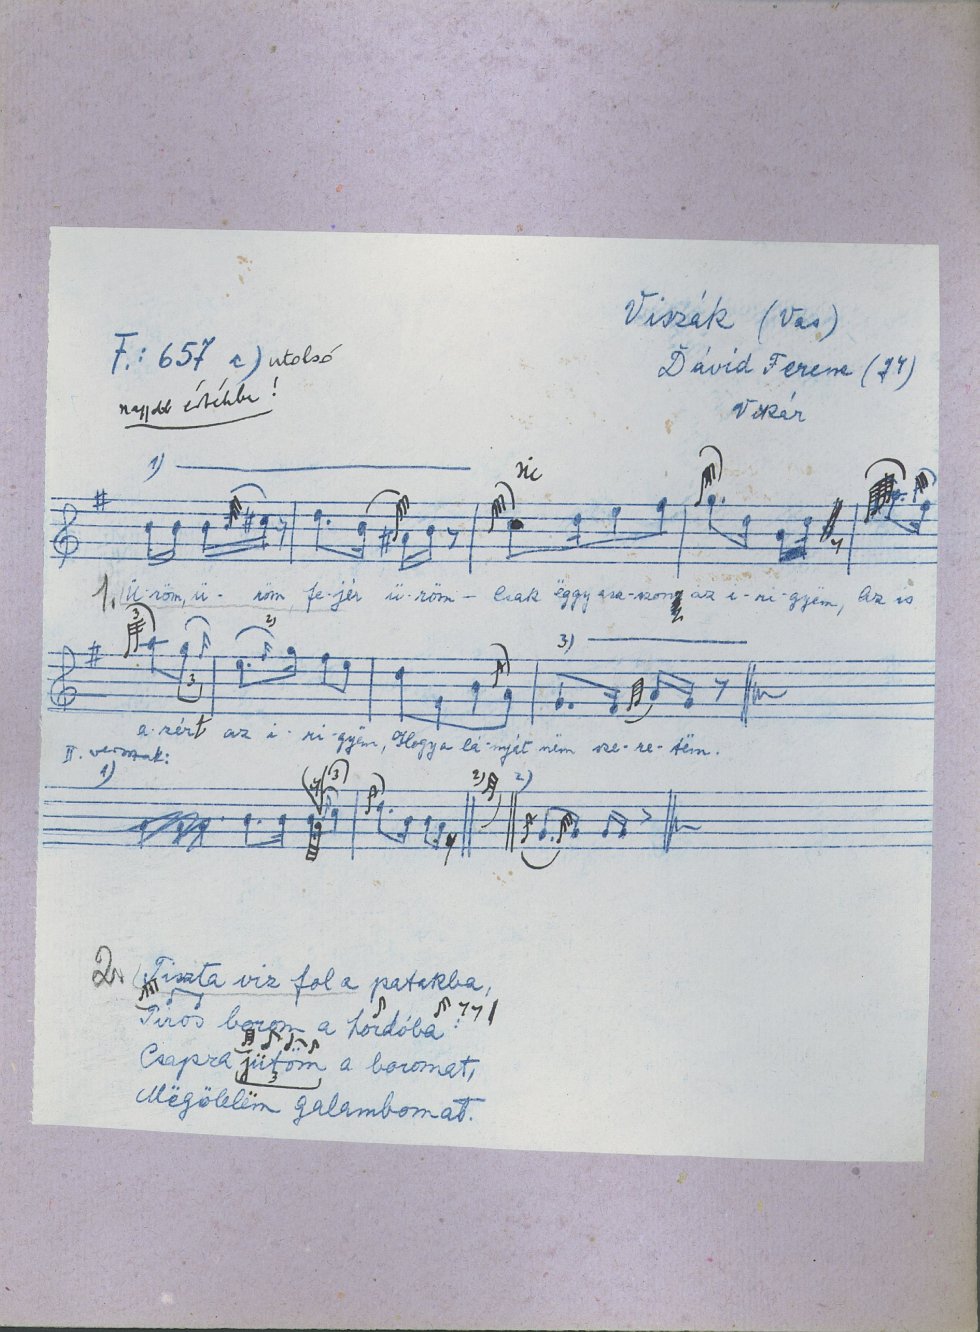 Viszák (Vas)
F.: 657 a) utolsó
Dávid Ferenc (74)
nagyobb értékbe!
Vikár
1)
sic
1. Ü-röm, ü- röm, fe-jér ü-röm – Csak ëggy asz-szony az i-ri-gyëm, Az is
3 2) 3)
3
a-zért az i-ri-gyëm, Hogy a lá-nyát nëm sze-re-tëm.
II. versszak:
1) 3 2) 2)
2. Tiszta viz fol a patakba,
Piros borom a hordóba
Csapra jütöm a boromat,
3
Mëgölelëm galambomat.